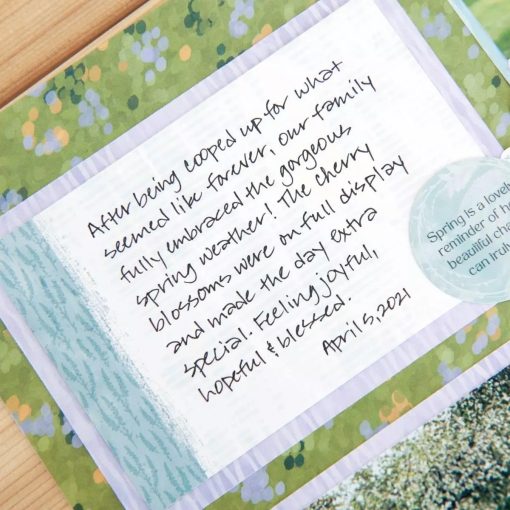 After being cooped up for what
seemed like forever, our family
fully embraced the gorgeous
spring weather! The cherry
blossoms were on full display
and made the day extra
special. Feeling joyful,
hopeful & blessed.
April 5, 2021
Spring is a lovel
reminder of h
beautiful cha
can truly